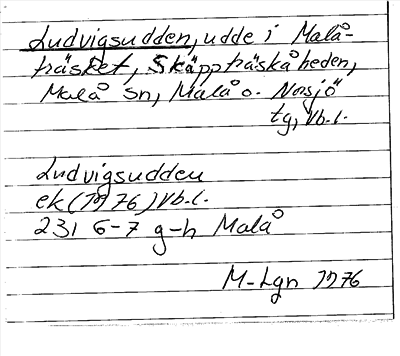 Ludvigsudden, udde i Malå-
träsket, Skäppträskåheden,
Malå sn, Malå o. Norsjö
tg, Vb.l.
Ludvigsudden
ek (1976) Vb.l.
231 6-7 g-h Malå
M-Lgn 1976